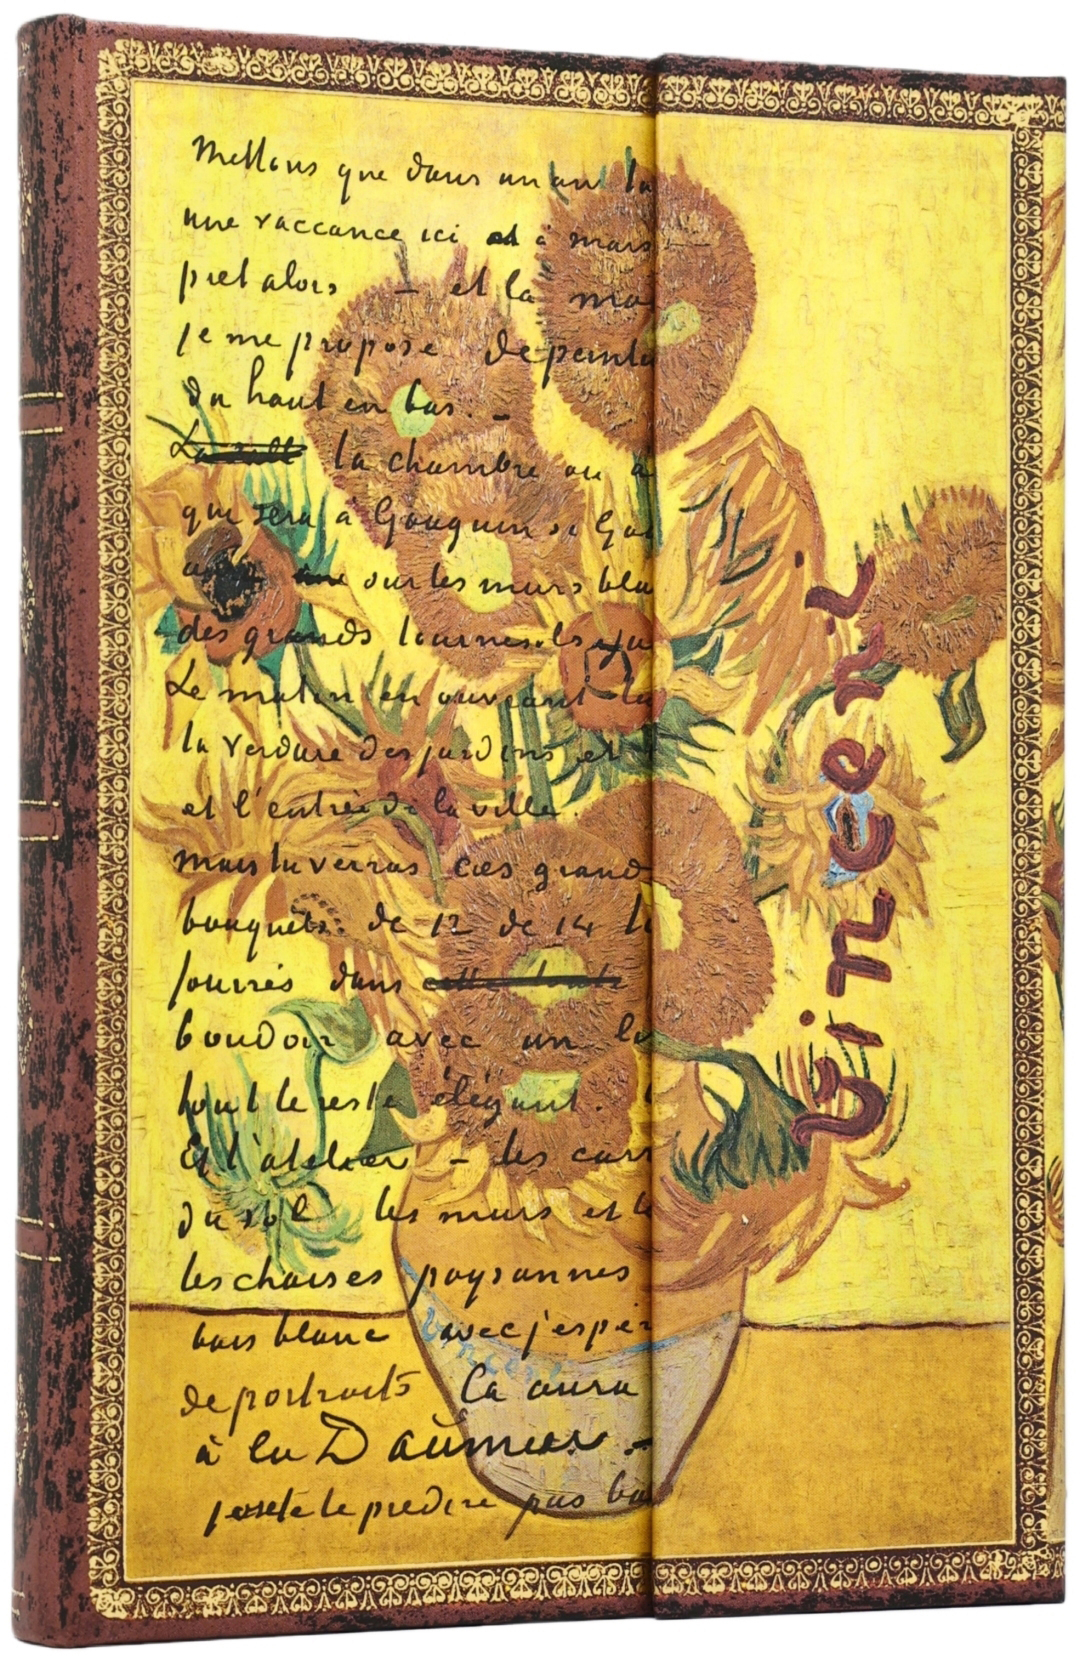 Mettons que dans un an tu
une vaccance ici et à mars
pret alors – et la ma
je me propose de peind
du haut en bas. –
la chambre ou a
que sera à Gauguin si Ga
aura sur les murs bla
des grands tournesols
Le matin en ouvrant la
la verdure des jardins et
et l'entrée de la ville.
mais tu verras cæs grand
bouquets de 12 de 14 t
fourrés dans cette toute
boudoir avec un l
tout le reste élégant.
Et l'atelier – les carr
du sol les murs et l
les chaises paysannes
bois blanc avec j'espèr
de portraits Ca aura
à la Daumier –
te le prédire pas ba
Vincent
Vincent